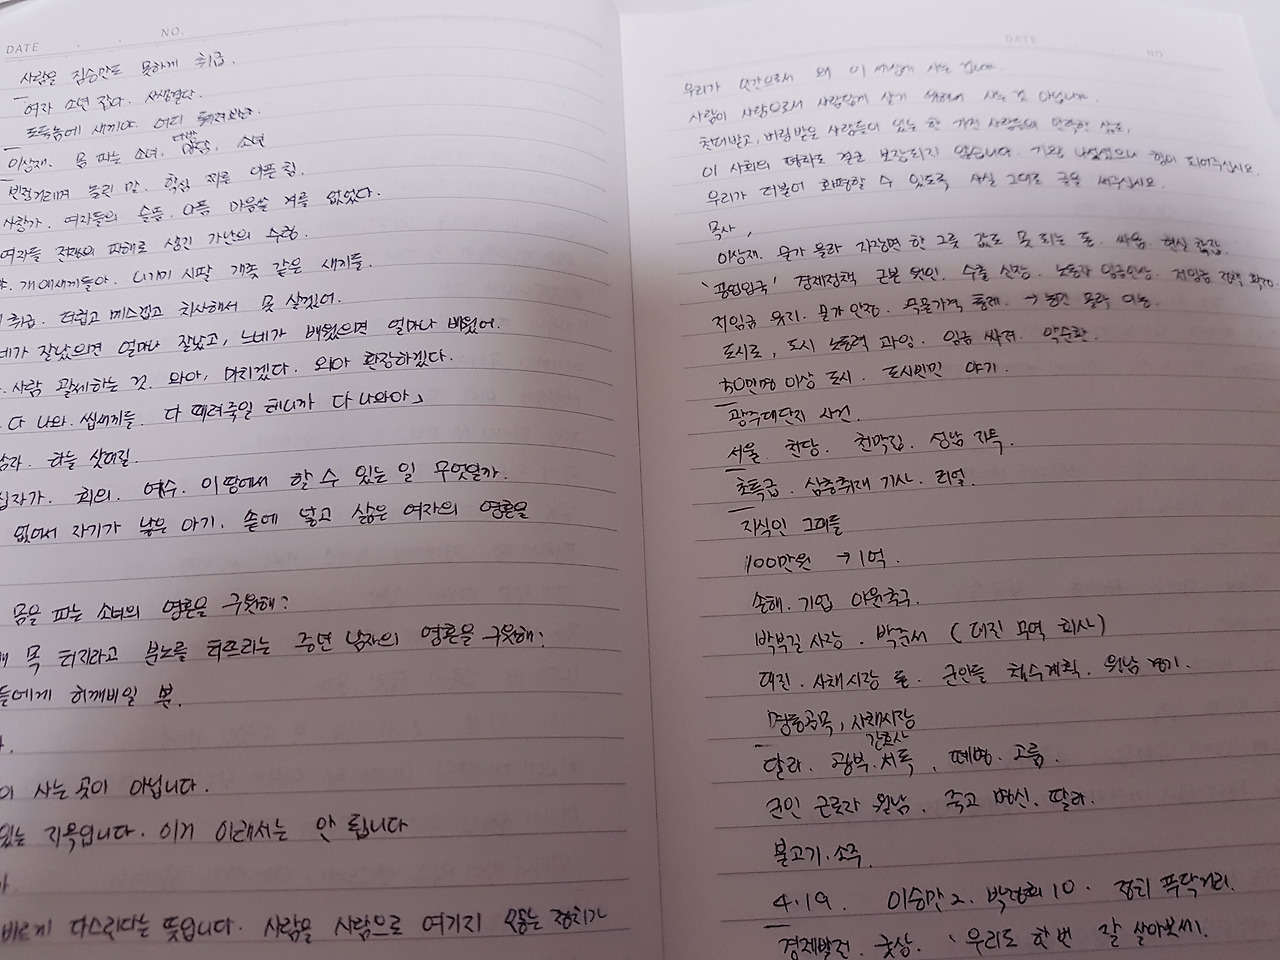 DATE
NO.
사람을 짐승만도 못하게 취급.
여자 소년 잡다.
도둑놈에 새끼야. 어디
이상재. 몸 파는 소녀. 소녀
빈정거리며 놀릴 만. 핵심 찌른 아픈 침.
사창가. 여자들의 슬픔. 아픔 마음쓸 겨를 없었다.
여자들 전쟁의 피해로 생긴 가난의 수렁.
개에새끼들아. 니기미 시팔 개좆 같은 새끼들.
취급. 더럽고 메스껍고 치사해서 못 살겠어.
네가 잘났으면 얼마나 잘났고, 느네가 배웠으면 얼마나 배웠어.
사람 괄세하는 것. 와아, 미치겠다. 와아 환장하겠다.
다 나와. 씹새끼들. 다 때려죽일 테니까 다 나와아」
남자. 하늘 삿대질.
십자가. 회의. 예수. 이 땅에서 할 수 있는 일 무엇일까.
없어서 자기가 낳은 아기. 솥에 넣고 삶은 여자의 영혼을
몸을 파는 소녀의 영혼을 구원해?
목 터져라고 분노를 터뜨리는 중년 남자의 영혼을 구원해?
들에게 허깨비일 뿐.
이 사는 곳이 아닙니다.
있는 지옥입니다. 이거 이래서는 안 됩니다
바르게 다스린다는 뜻입니다. 사람을 사람으로 여기지 않는 정치가
DATE
NO
우리가 인간으로서 왜 이
사람이 사람으로서 사람답게 살기 위해서 사는 것 아닙니까.
천대받고, 버림받은 사람들이 있는 한 가진 사람들의 안락한 삶도,
이 사회의 평화도 결코 보장되지 않습니다. 기왕 나섰으니 힘이 되어주십시오.
우리가 더불어 화평할 수 있도록 사실 그대로 글을 써주십시오.
목사,
이상재. 물가 올라 자장면 한 그릇 값도 못 되는 돈. 싸움. 현실 합집.
'공업입국' 경제정책 근본 원인. 수출 신장. 노동자 임금인상. 저임금 정책
저임금 유지. 물가 안정. 곡물가격 통제. → 농민 몰락 이농.
도시로, 도시 노동력 과잉. 임금 싸져. 악순환.
50만명 이상 도시. 도시빈민 야기.
광주대단지 사건.
서울 천당. 천막집. 성남 지옥.
초특급. 심층취재 기사. 리얼.
지식인 그대들
100만원 → 1억.
손해. 기업 야원축구.
박부길 사장. 박준서 (대진 무역 회사)
대진. 사채시장 돈. 군인들 철수계획. 월남 경기.
명동골목, 사채시장
달라. 광부. 간호사 서독. 떼명. 고름.
군인 근로자 월남. 죽고 병신. 딸라.
불고기. 소주.
4·19. 이승만 2. 박정희 10. 정치 푸닥거리.
경제발전. 굿상. '우리도 한번 잘 살아보세!